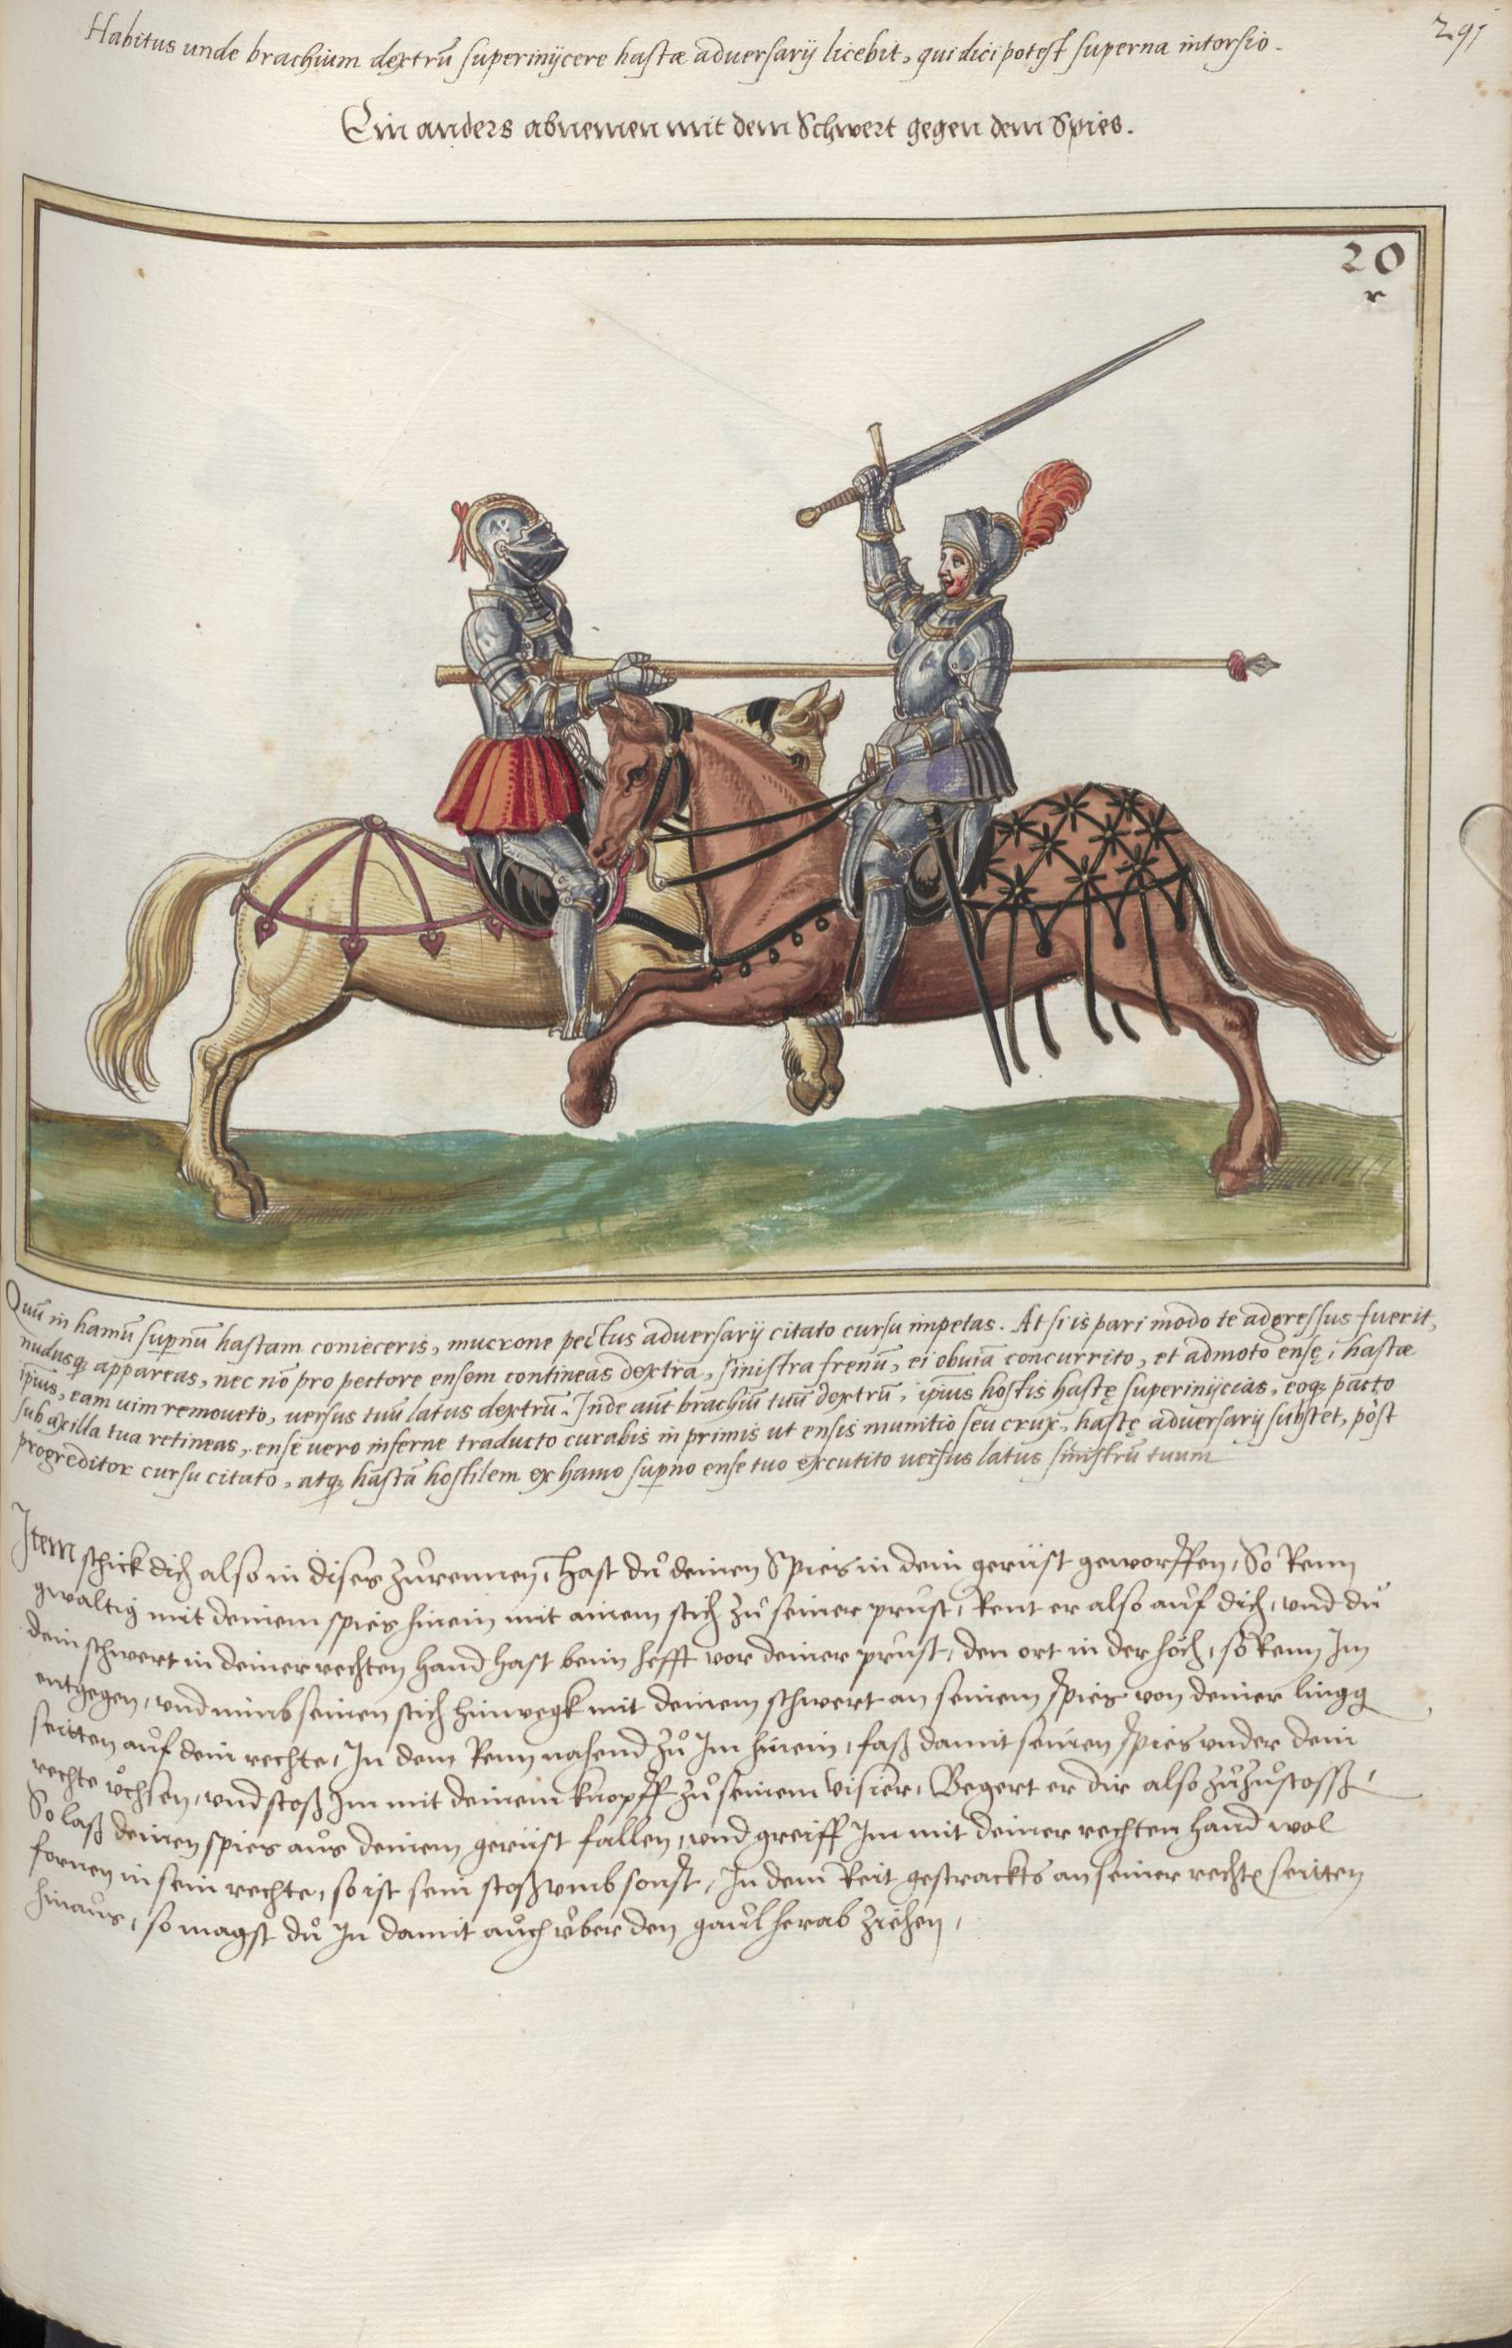 Habitus unde brachium dextrū superinijcere hastæ adversarij licebit, qui dici potest superna intorsio.
291
Ein anders abnemen mit dem Schwert gegen dem Spies.
20
r
Quū in hamū supnū hastam conieceris, mucrone pectus adversarij citato cursu impetas. At si is pari modo te adgressus fuerit,
nudusq; appareas, nec nō pro pectore ensem contineas dextra, sinistra frenū, ei obuiā concurrito, et admoto ensę, hastæ
ipius, eam uim remoueto, versus tuū latus dextrū. Inde aūt brachiū tuū dextrū, ipius hostis hastę superinijcias, eoq; pacto
sub axilla tua retineas, ense uero inferne traducto curabis in primis ut ensis munitio seu crux, hastę adversarij substet, pòst
progreditor cursu citato, atq; hastā hostilem ex hamo supno ense tuo excutito versus latus sinistrū tuum
Item schick dich also in dises zůrennen, hast dů deinen Spies in dein gerüst geworffen, So Renn
gwaltig mit deinem spies hinein mit ainem stich zů seiner prust, Rent er also auf dich, und dů
dein schwert in deiner rechten hand hast beim hefft vor deiner prust, den ort in der höch, so Renn Im
entgegen, und nimb seinen stich hinwegk mit deinem schwert an seinem spies von deiner lingg
seitten auf dein rechte, In dem Renn nahend zů Im hinein, faß damit seinen spies under dein
rechte ůchsen, und stoß Im mit deinem knopff zů seinem visier, Begert er dir also zůzůstossē,
So laß deinen spies aus deinem gerüst fallen, und greiff Im mit deiner rechten hand wol
fornen in sein rechte, so ist sein stoß umb sonst, In dem Reit gestrackts an seiner rechtē seitten
hinaus, so magst dů In damit auch über den gaul herab ziehen,